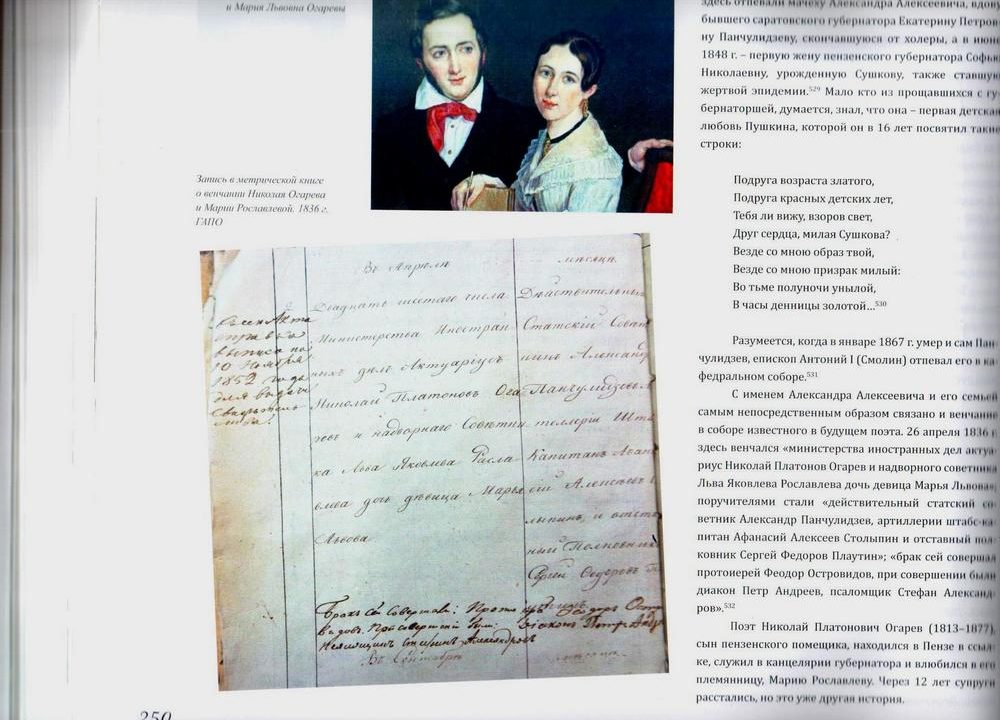 и Мария Львовна Огаревы
Запись в метрической книге
о венчании Николая Огарева
и Марии Рославлевой. 1836 г.
ГАПО
Въ Апрѣлѣ мѣсяца
Двадцать шестаго числа
Министерства Иностран
ныхъ дѣлъ Актуаріусъ
Николай Платоновъ Ога
ревъ и надворнаго Совѣтни
ка Льва Яковлева Росла
влева дочь дѣвица Марья
Львова
Дѣйствительный
Статскій Совѣт
никъ Александръ
Панчулидзевъ
теллеріи Шта
Капитанъ Афан
сій Алексѣевъ
лыпинъ, и отста
ный Полковникъ
Сергѣй Ѳедоровъ
10 Ноября
1852 года
для выдачи
Бракъ сей совершалъ: Прото
діаконъ Петръ Андр
Въ Сентябрѣ мѣсяца
250
здесь отпевали мачеху Александра Алексеевича, вдову
бывшего саратовского губернатора Екатерину Петров-
ну Панчулидзеву, скончавшуюся от холеры, а в июне
1848 г. – первую жену пензенского губернатора Софью
Николаевну, урожденную Сушкову, также ставшую
жертвой эпидемии.529 Мало кто из прощавшихся с гу-
бернаторшей, думается, знал, что она – первая детская
любовь Пушкина, которой он в 16 лет посвятил такие
строки:
Подруга возраста златого,
Подруга красных детских лет,
Тебя ли вижу, взоров свет,
Друг сердца, милая Сушкова?
Везде со мною образ твой,
Везде со мною призрак милый:
Во тьме полуночи унылой,
В часы денницы золотой...530
Разумеется, когда в январе 1867 г. умер и сам Пан-
чулидзев, епископ Антоний I (Смолин) отпевал его в ка-
федральном соборе.531
С именем Александра Алексеевича и его семьей
самым непосредственным образом связано и венчание
в соборе известного в будущем поэта. 26 апреля 1836 г.
здесь венчался «министерства иностранных дел актуа-
риус Николай Платонов Огарев и надворного советника
Льва Яковлева Рославлева дочь девица Марья Львова»;
поручителями стали «действительный статский со-
ветник Александр Панчулидзев, артиллерии штабс-ка-
питан Афанасий Алексеев Столыпин и отставный пол-
ковник Сергей Федоров Плаутин»; «брак сей совершал
протоиерей Феодор Островидов, при совершении были
диакон Петр Андреев, псаломщик Стефан Александ-
ров».532
Поэт Николай Платонович Огарев (1813–1877),
сын пензенского помещика, находился в Пензе в ссыл-
ке, служил в канцелярии губернатора и влюбился в его
племянницу, Марию Рославлеву. Через 12 лет супруги
расстались, но это уже другая история.